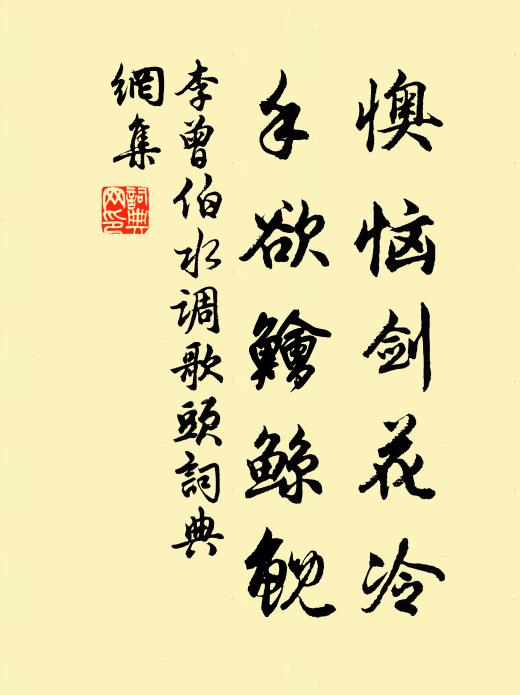 懊恼剑花冷
手欲鱠鲸鲵
李曾伯水调歌头詞典
網集
詞典
网印